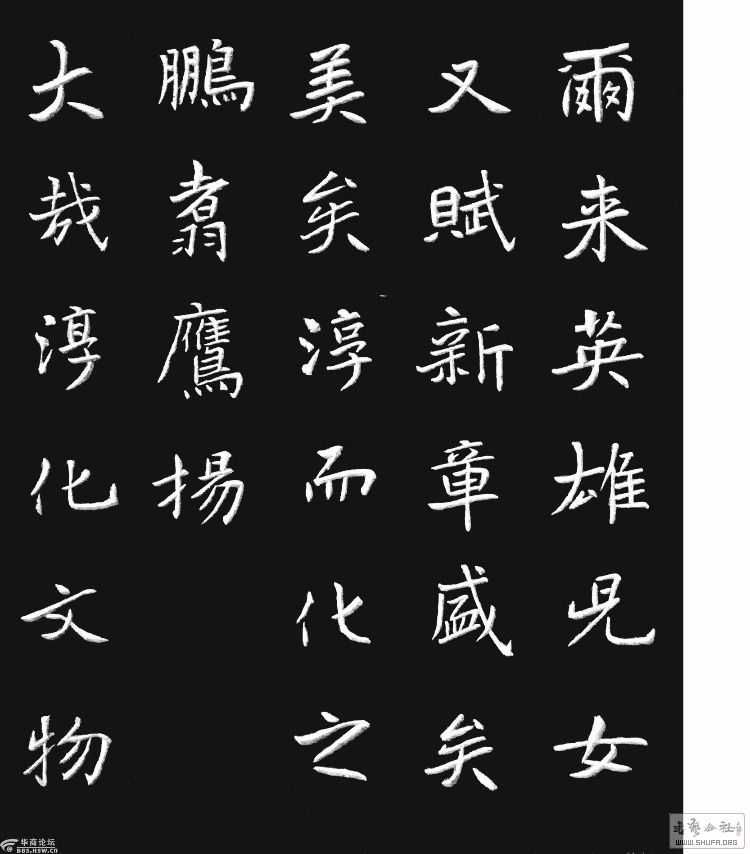 爾来英雄児女
又賦新章盛矣
美矣淳而化之
鵬翥鷹揚
大哉淳化文物
华商论坛
BBS.HSW.CN
WWW.SHUFA.ORG